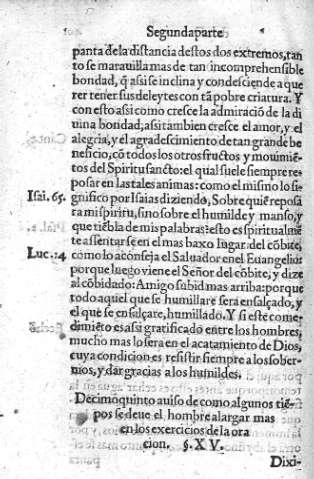 Segunda parte
panta de la distancia destos dos extremos, tan
to se marauilla mas de tan incomprehensible
bondad, q̃ assi se inclina y condesciende a que
rer tener sus deleytes con tã pobre criatura. Y
con esto assi como cresce la admiraciõ de la di
uina bondad, assi tambien cresce el amor, y el
alegria, y el agradescimiento de tan grande be
neficio, cõ todos los otros fructos y mouimiẽ
tos del Spiritu sancto: el qual suele siempre re
posar en las tales animas: como el mismo lo si
Isai. 65. gnifico por Isaias diziendo, Sobre quiẽ reposa
ra mi spiritu, sino sobre el humilde y manso, y
que tiẽbla de mis palabras? esto es spiritualmẽ
te assentarse en el mas baxo lugar del cõbite,
Luc. 14 como lo aconseja el Saluador en el Euangelio:
porque luego viene el Señor del cõbite, y dize
al cõbidado: Amigo subid mas arriba: porque
todo aquel que se humillare sera ensalçado, y
el que se ensalçare, humillado. Y si este come-
dimiẽto es assi gratificado entre los hombres,
mucho mas lo sera en el acatamiento de Dios,
cuya condicion es resistir siempre a los sober-
uios, y dar gracias a los humildes.
Decimoquinto auiso de como algunos tiẽ-
pos se deue el hombre alargar mas
en los exercicios de la ora
cion. §. XV.
Dixi-